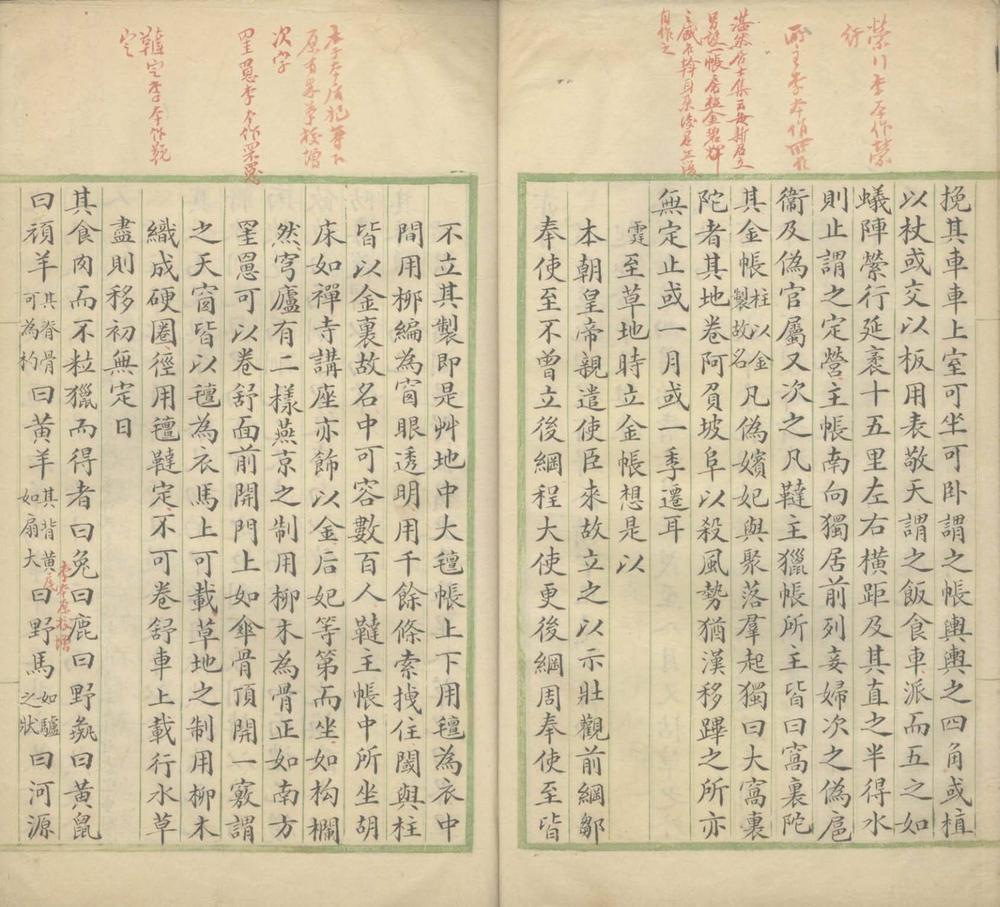 縈行李本作縈
行
湛然居士集
自作之
挽其車車上室可坐可卧謂之帳輿輿之四角或植
以杖或交以板用表敬天謂之飯食車派而五之如
蟻陣縈行延袤十五里左右横距及其直之半得水
則止謂之定營主帳南向獨居前列妾婦次之偽扈
衞及偽官屬又次之凡韃主獵帳所主皆曰窩裏陀
其金帳柱以金製故名凡偽嬪妃與聚落羣起獨曰大窩裏
陀者其地卷阿負坡阜以殺風勢猶漢移蹕之所亦
無定止或一月或一季遷耳
霆至草地時立金帳想是以
本朝皇帝親遣使臣來故立之以示壯觀前綱鄒
奉使至不曾立後綱程大使更後綱周奉使至皆
次字
罣罳李本作罘罳
定李本作
不立其製即是艸地中大氊帳上下用氊為衣中
間用栁編為窗眼透明用千餘條索拽住閾與柱
皆以金裏故名中可容數百人韃主帳中所坐胡
床如禪寺講座亦飾以金后妃等第而坐如构欄
然穹廬有二樣燕京之制用柳木為骨正如南方
罣罳可以卷舒面前開門上如傘骨頂開一竅謂
之天窗皆以氊為衣馬上可載草地之制用柳木
織成硬圈徑用氊韃定不可卷舒車上載行水草
盡則移初無定日
其食肉而不粒獵而得者曰兔曰鹿曰野彘曰黄鼠
李本原校增
曰頑羊其脊骨可為杓曰黄羊其背黄尾如扇大曰野馬如驢之狀曰河源